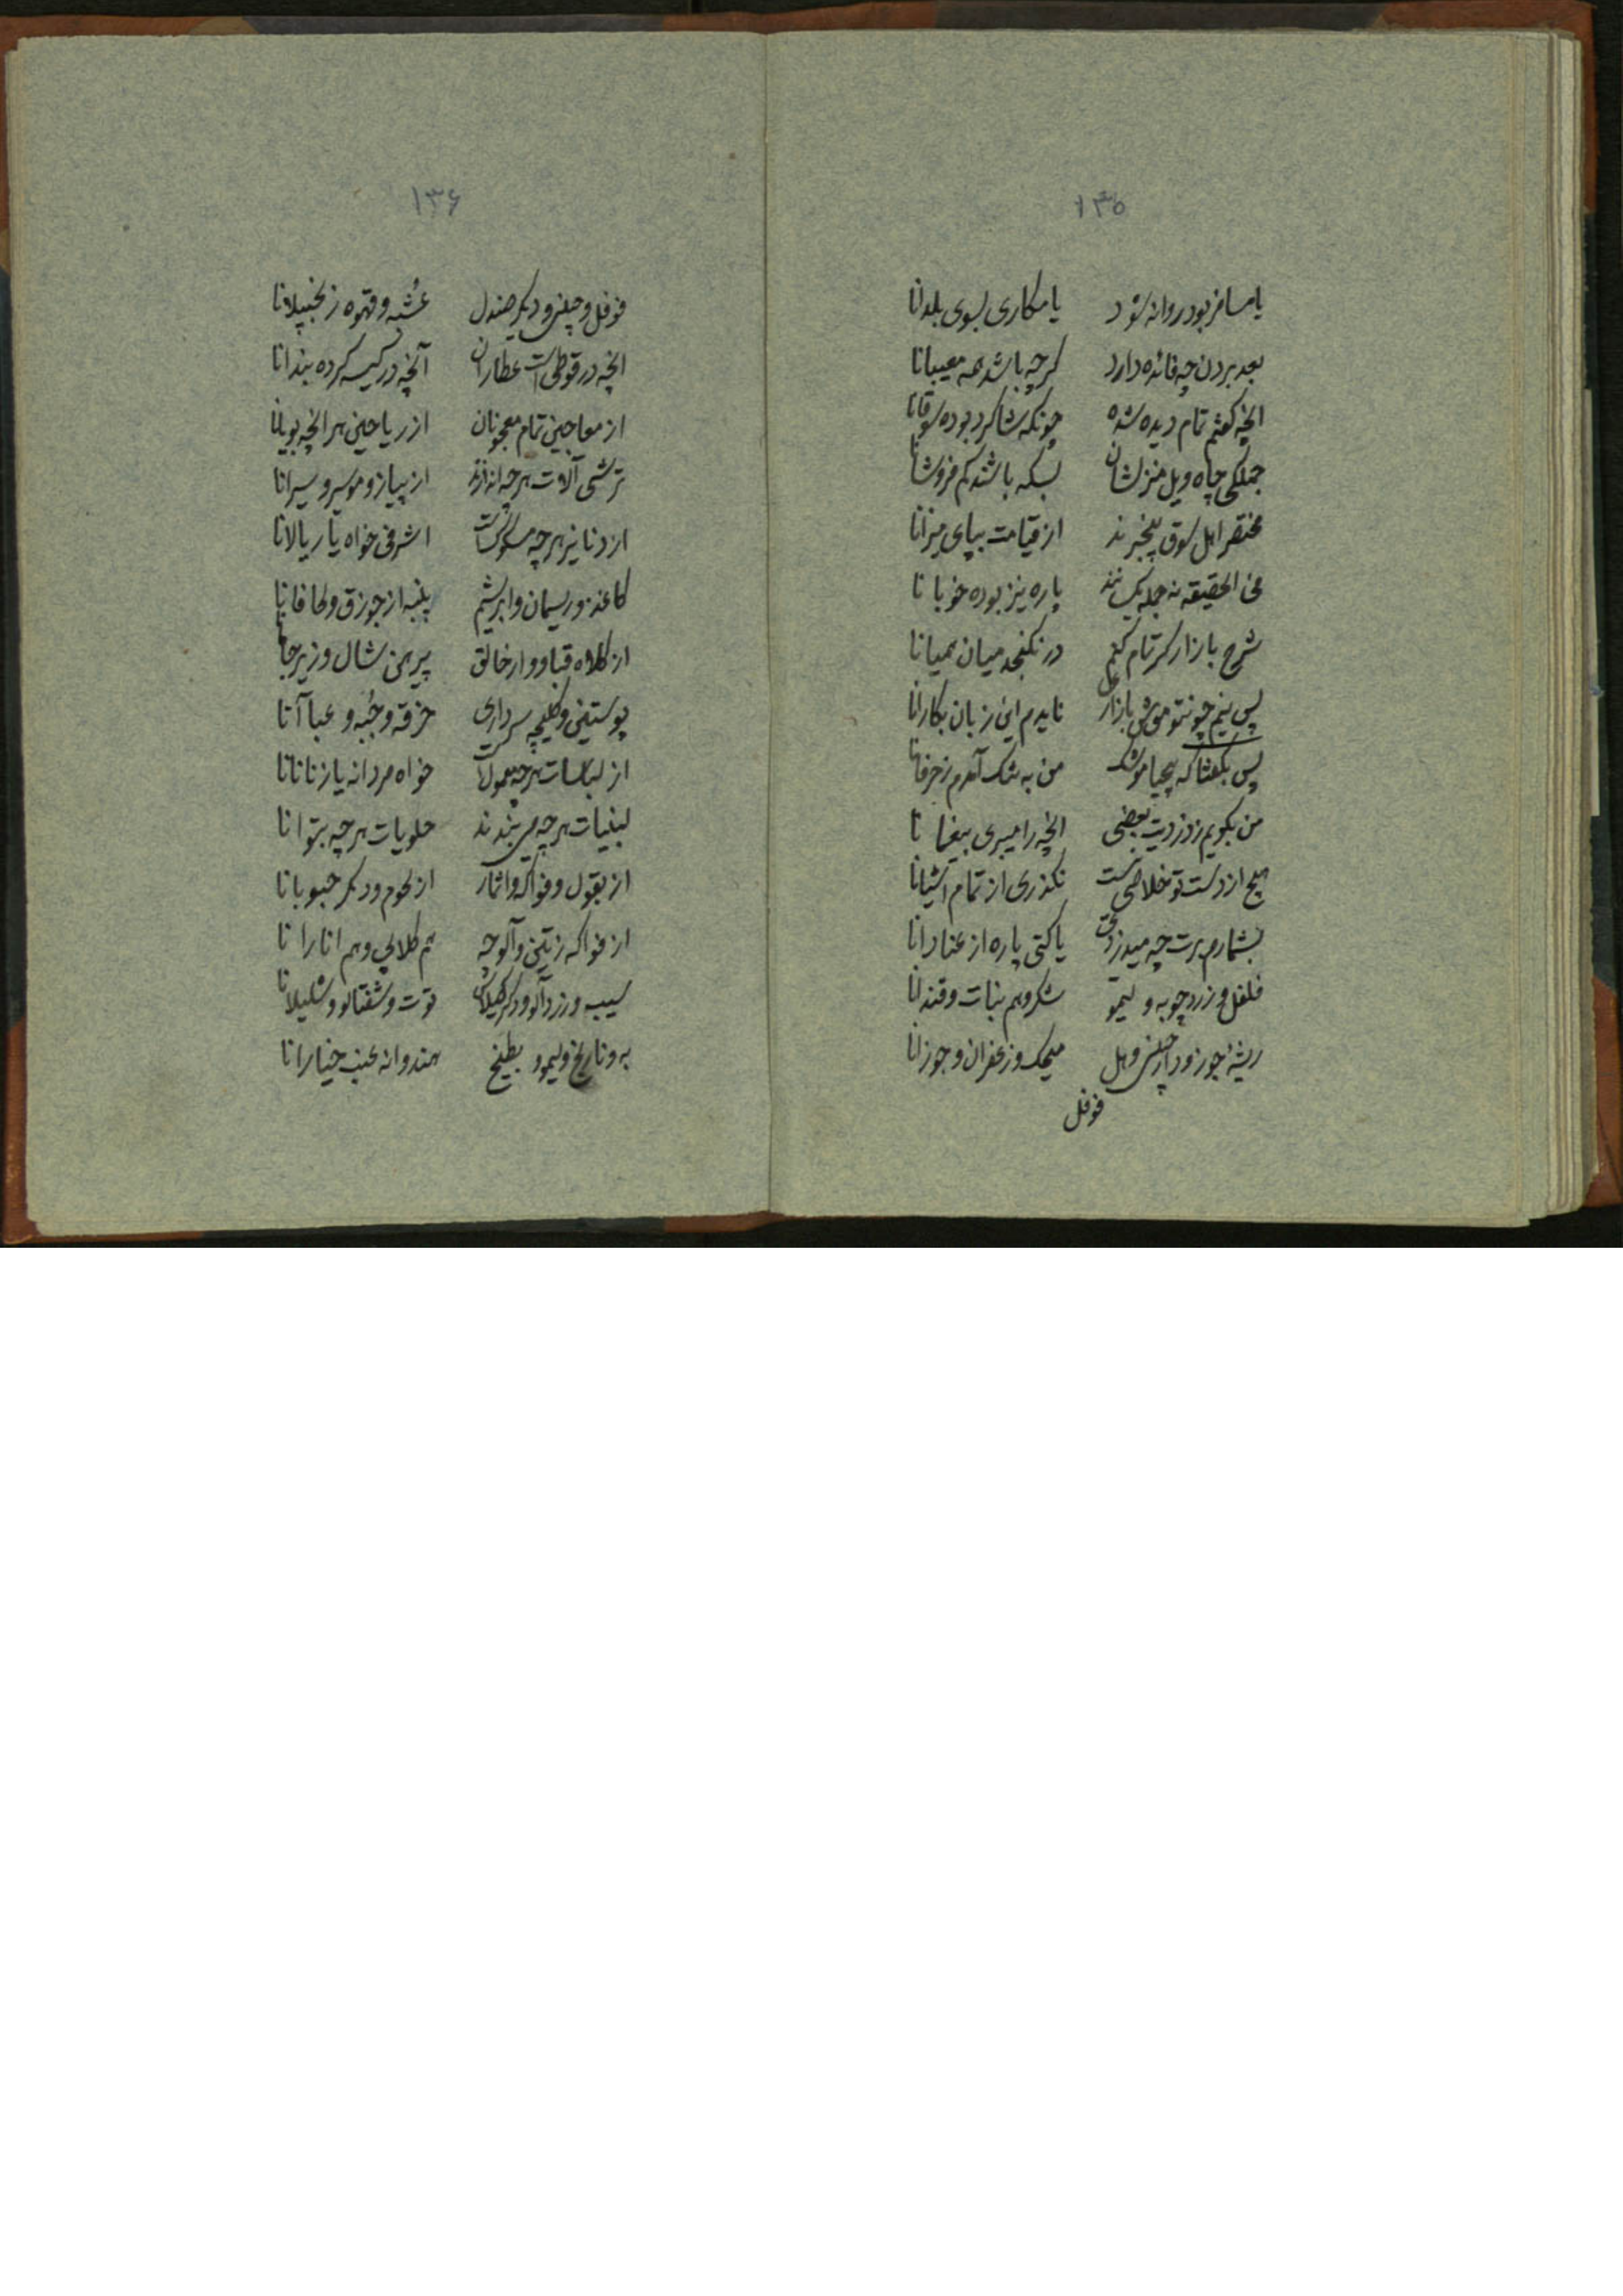 ۱۳۵
یا مسافر بود روانه شود یا مکاری بسوی بلدانا
بعد بردن چه فائده دارد گرچه باشد همه معیبانا
انچه گفتم تمام دیده شده چونکه شاگرد بوده سوقانا
جملگی چاه ویل منزلشان بسکه باشند کم فروشانا
مختصر اهل سوق بیخبرند از قیامت بپای میزانا
فی الحقیقه نه جمله یکسانند پاره نیز بوده خوبانا
شرح بازار گر تمام کنم در نگنجد میان همیانا
پس نیم چون تو موش بازاری نایدم این زبان بکارانا
پس بگفتا که بیحیا موشک من به تنگ آمدم ز حرفانا
من بگویم ز دزدیت بعضی انچه را میبری بیغمانا
هیچ از دست تو خلاصی نیست نگذری از تمام اشیانا
بشمارم برت چه میدزدی یا کنی پاره از عنادانا
فلفل و زردچوبه و لیمو شکر و هم نبات و قندانا
ریشه جوز و دارچین و هل میخک و زعفران و جوزانا
فوفل
۱۳۶
فوفل و چینی و دیگر صندل عُشبه و قهوه زنجبیلانا
انچه در قوطی است عطاران آنچه در کیسه کرده بندانا
از معاجین تمام معجونان از ریاحین هر انچه بویانا
ترشی آلات هرچه اندازند از پیاز و موسیر و سیرانا
از دنانیر هرچه مسکوکست اشرفی خواه یا ریالانا
کاغذ و ریسمان و ابریشم پنبه از جوزق و لحافانا
از کلاه و قبا و ارخالق پیرهن شال و زیرجامانا
پوستین و کلیچه سرداری خرقه و جُبه و عباآنا
از لباسات هرچه معمولست خواه مردانه یا زنانانا
لبنیات هرچه می‌بندند حلویات هرچه بتوانا
از بقول و فواکه و اثمار از لحوم و دیگر حبوبانا
از فواکه ز تین و آلوچه هم گلابی و هم انارانا
سیب و زردآلو و دگر گیلاس توت و شفتالو و شلیلانا
به و نارنج و لیمو و بطیخ هندوانه عنب خیارانا